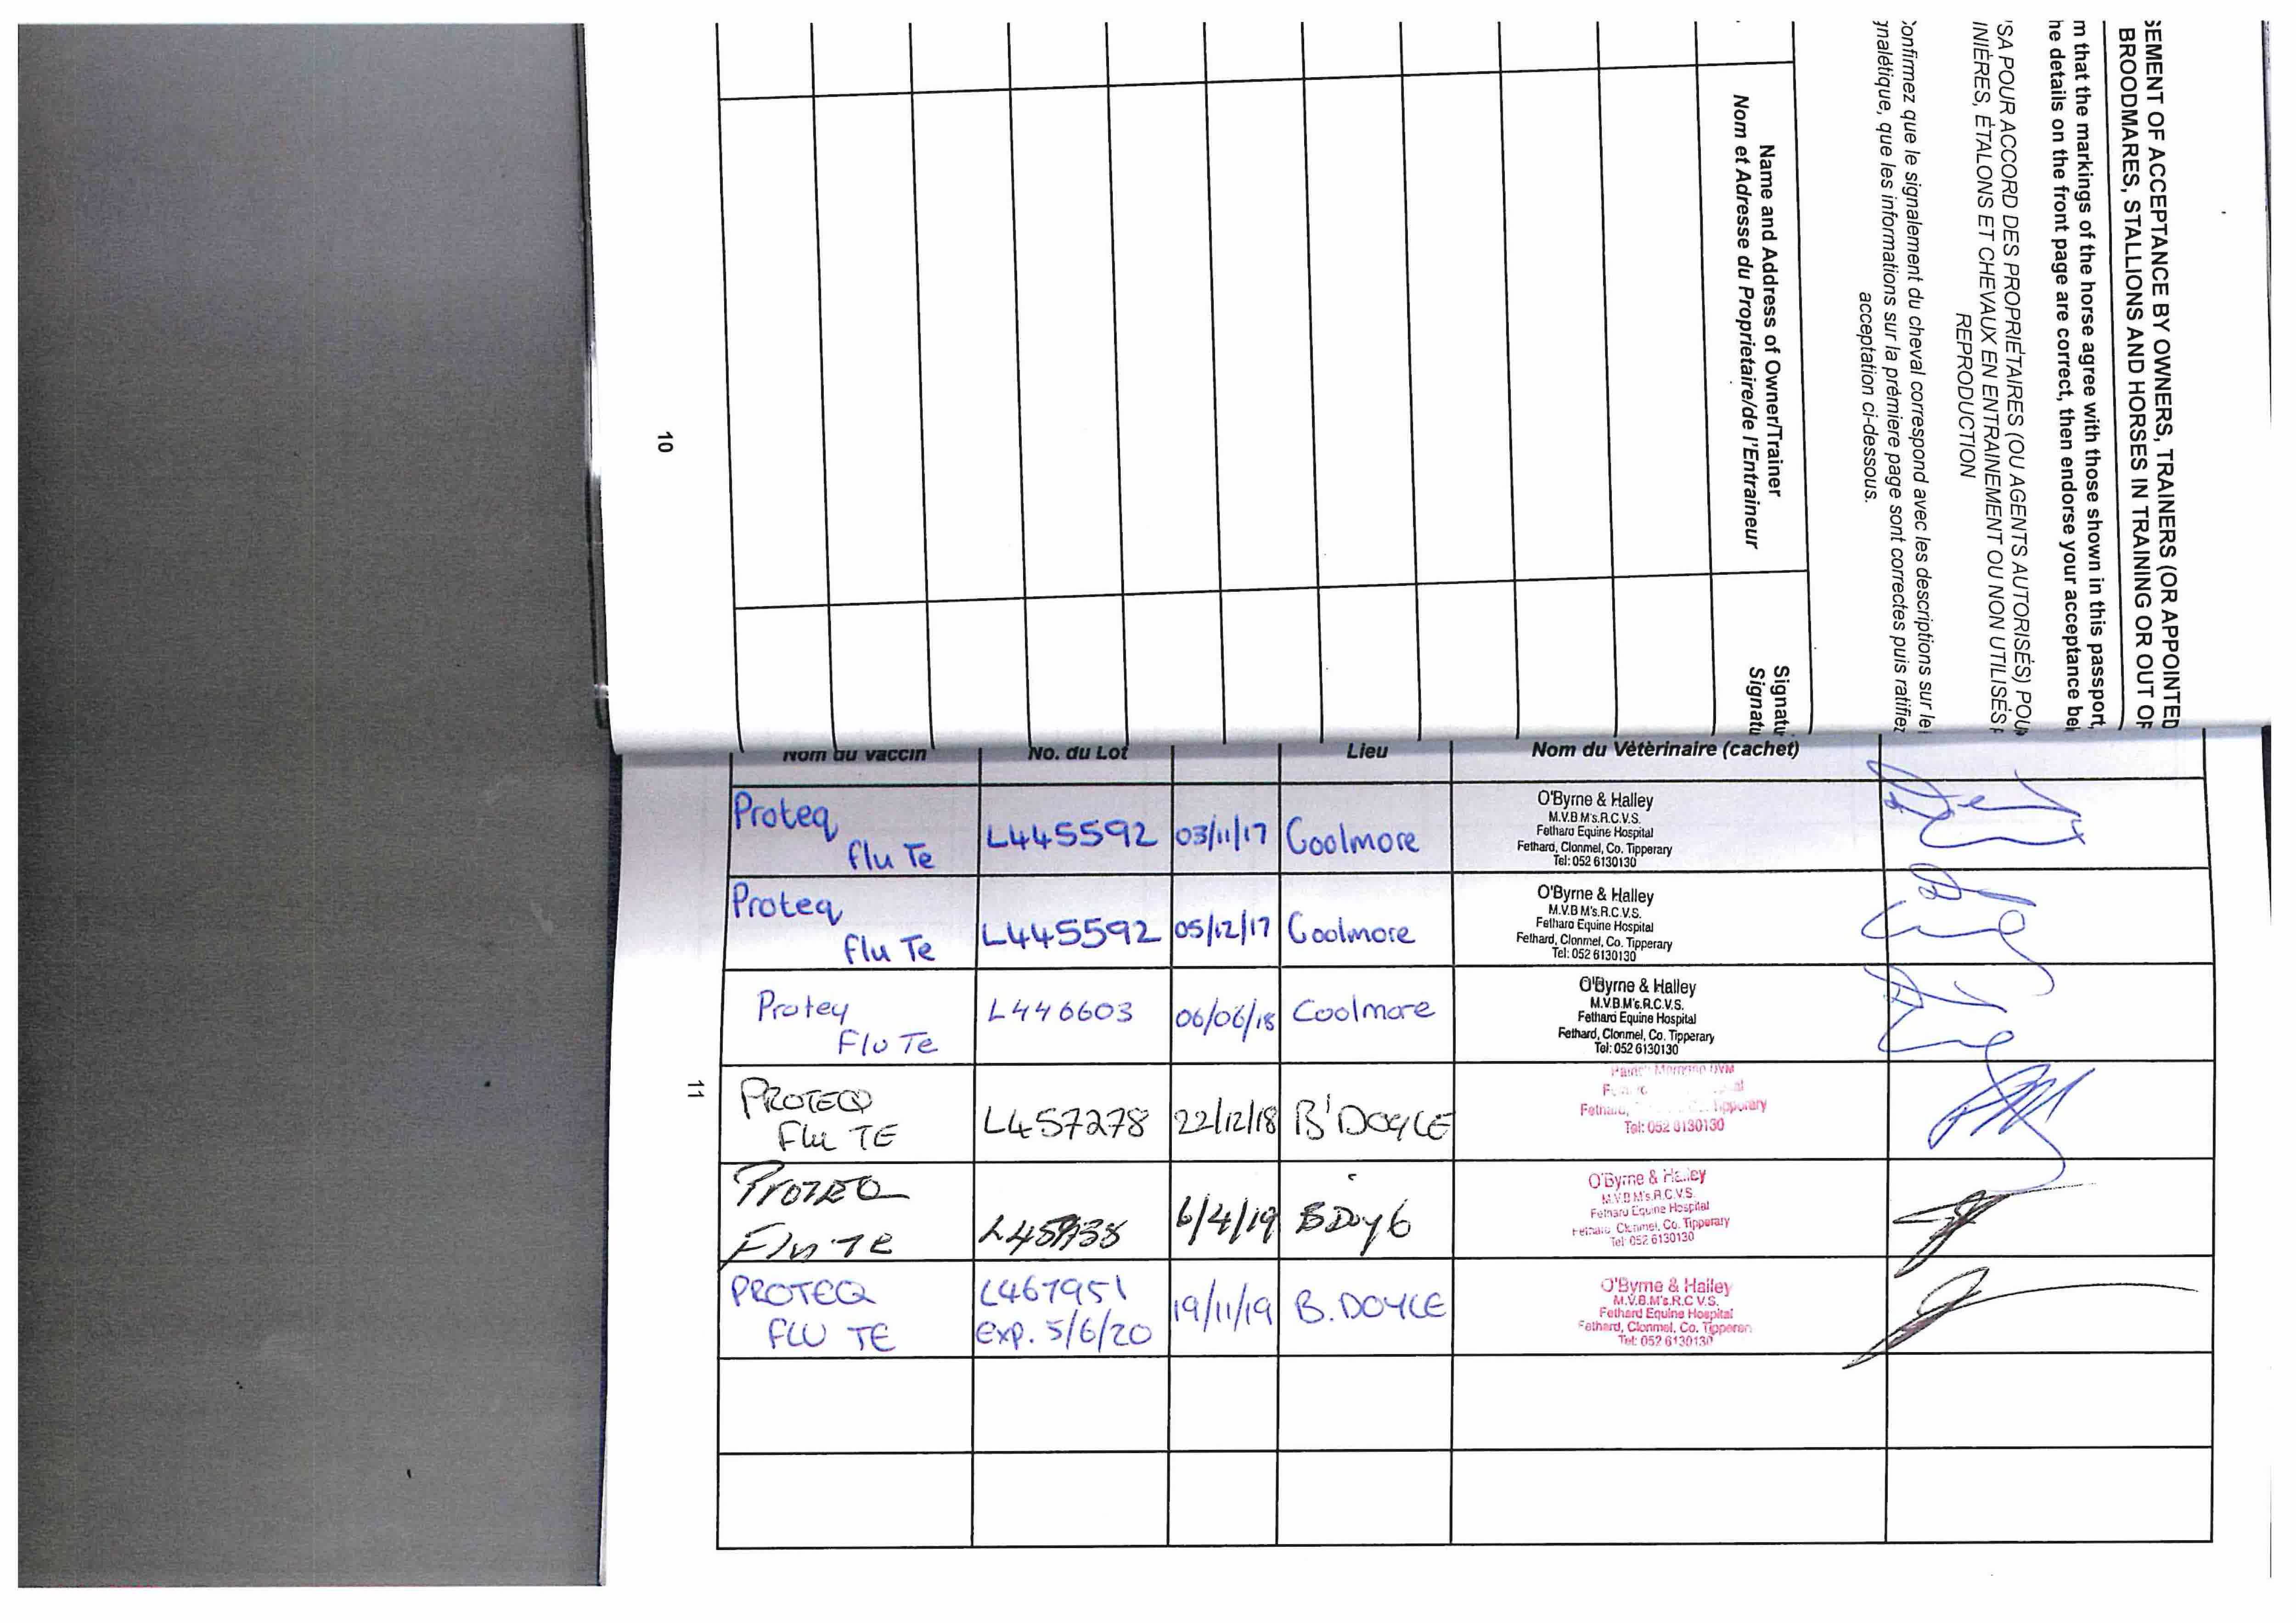 SEMENT OF ACCEPTANCE BY OWNERS, TRAINERS (OR APPOINTED
BROODMARES, STALLIONS AND HORSES IN TRAINING OR OUT OF
m that the markings of the horse agree with those shown in this passport,
he details on the front page are correct, then endorse your acceptance bel
'SA POUR ACCORD DES PROPRIÉTAIRES (OU AGENTS AUTORISÉS) POU
INIÈRES, ÉTALONS ET CHEVAUX EN ENTRAINEMENT OU NON UTILISÉS P
REPRODUCTION
Confirmez que le signalement du cheval correspond avec les descriptions sur le
gnalétique, que les informations sur la prèmiere page sont correctes puis ratifiez
acceptation ci-dessous.
Name and Address of Owner/Trainer
Nom et Adresse du Proprietaire/de l'Entraineur
Signatu
Signatu
10
Nom du vaccin No. du Lot Lieu Nom du Vétèrinaire (cachet)
Proteq
flu Te
L445592 03/11/17 Coolmore
O'Byrne & Halley
M.V.B M's.R.C.V.S.
Fethard Equine Hospital
Fethard, Clonmel, Co. Tipperary
Tel: 052 6130130
Proteq
flu Te
L445592 05/12/17 Coolmore
O'Byrne & Halley
M.V.B M's.R.C.V.S.
Fethard Equine Hospital
Fethard, Clonmel, Co. Tipperary
Tel: 052 6130130
Proteq
Flu Te
L446603 06/06/18 Coolmore
O'Byrne & Halley
M.V.B.M's.R.C.V.S.
Fethard Equine Hospital
Fethard, Clonmel, Co. Tipperary
Tel: 052 6130130
11
PROTEQ
Flu TE
L457278 22/12/18 B'DOYLE
Fethard, Tipperary
Tel: 052 6130130
PROTEQ
Flu TE
6/4/19
O'Byrne & Halley
M.V.B M's.R.C.V.S.
Fethard Equine Hospital
Fethard, Clonmel, Co. Tipperary
Tel: 052 6130130
PROTEQ
FLU TE
L467951
Exp. 5/6/20
19/11/19 B.DOYLE
O'Byrne & Halley
M.V.B.M's.R.C V.S.
Fethard Equine Hospital
Fethard, Clonmel, Co. Tipperary
Tel: 052 6130130